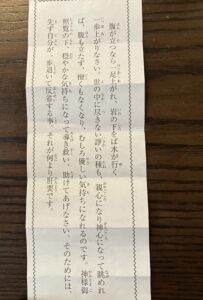 腹が立つなら一足上がれ、岩の下をば水が行く
一歩上がりなさい。世の中に尽きない諍いの種も、親心になり神心になって眺めれ
ば、腹も立たず、憎くもなくなり、むしろ優しい気持ちになれるのです。神様御
照覧の下、穏やかな気持ちになって導き救い、助けてあげなさい。そのためには、
先ず自分が一歩退いて反省する事、それが何より肝要です。